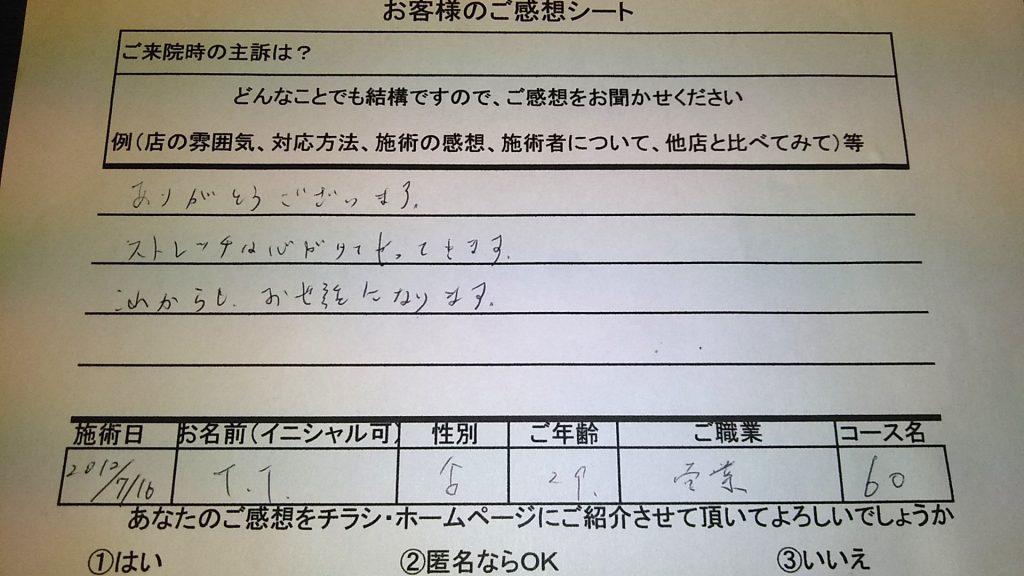 お客様のご感想シート
ご来院時の主訴は？
どんなことでも結構ですので、ご感想をお聞かせください
例（店の雰囲気、対応方法、施術の感想、施術者について、他店と比べてみて）等
ありがとうございます。
ストレッチは心がけてやってきます。
これからも、お世話になります。
施術日 お名前（イニシャル可） 性別 ご年齢 ご職業 コース名
7/16 T.T. 29. 営業 60
あなたのご感想をチラシ・ホームページにご紹介させて頂いてよろしいでしょうか
①はい ②匿名ならOK ③いいえ